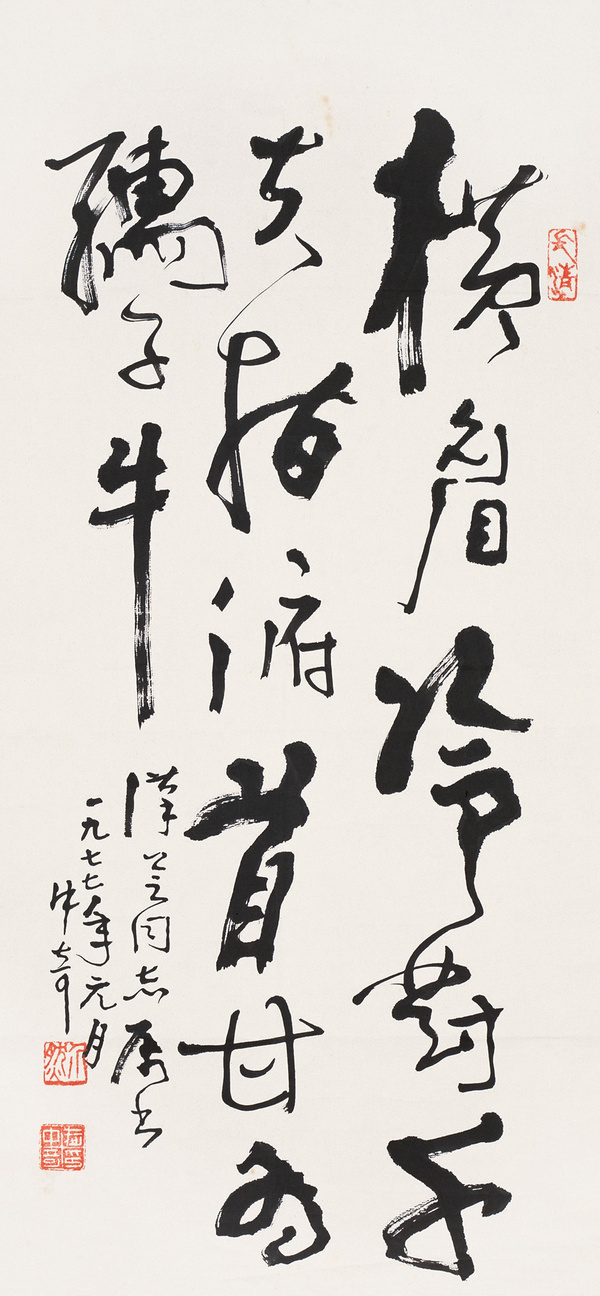 横眉冷對千
夫指俯首甘为
孺子牛
漢同志属书
一九七七年元月
中奇
长清